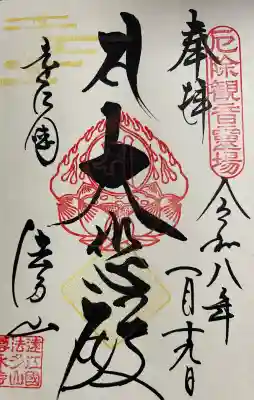 奉拝
厄除観音靈場
令和八年
一月十九日
大悲殿
遠江国
法多山
遠江國
法多山
尊永寺